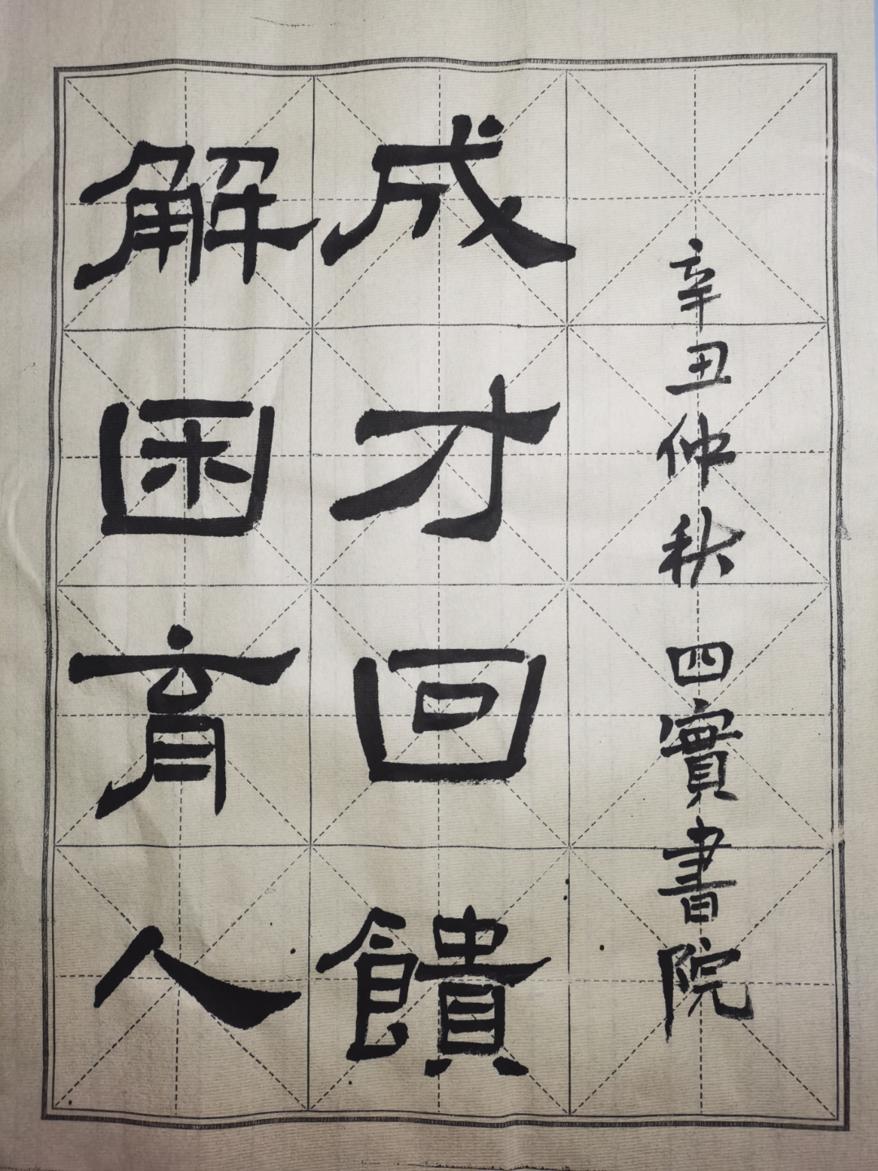 解困育人
成才回饋
辛丑仲秋 四實書院